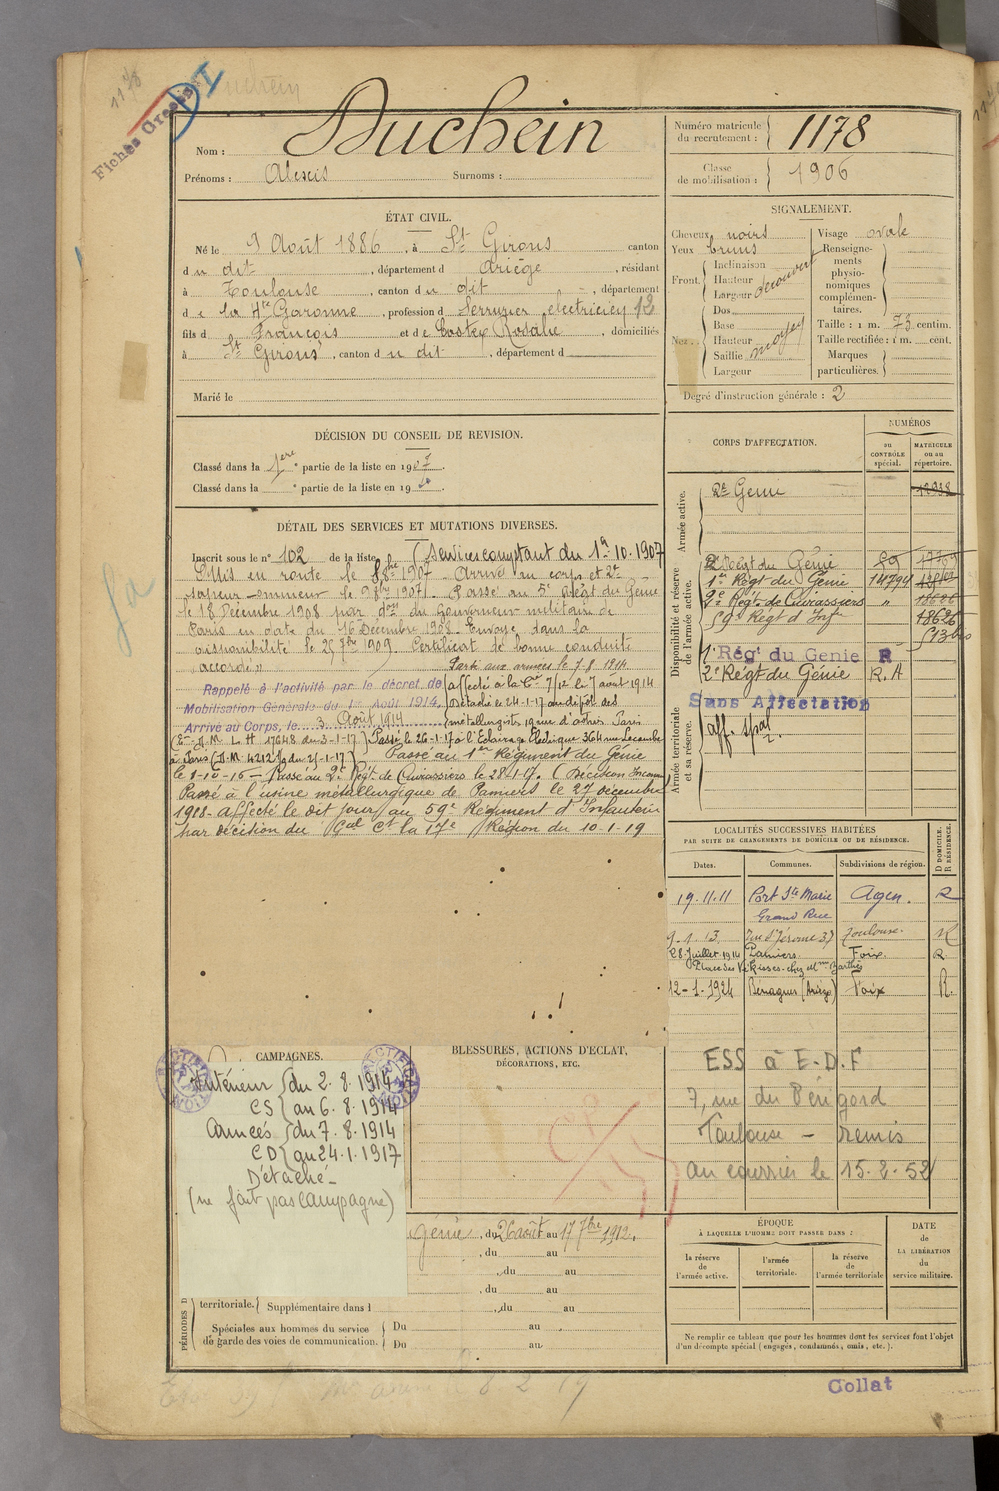 1178
Fiches Croesées I
Nom : Duchein
Prénoms : Alexis Surnoms :
Numéro matricule du recrutement : 1178
Classe de mobilisation : 1906
ÉTAT CIVIL.
Né le 9 Août 1886, à St Girons canton
du dit, département d Ariège, résidant
à Toulouse, canton du dit, département
de la Hte Garonne, profession d Serrurier électricien 12
fils d François et de Costex Rosalie, domiciliés
à St Girons, canton du dit, département d
Marié le
SIGNALEMENT.
Cheveux noirs Visage ovale
Yeux bruns
Front. Inclinaison
Hauteur
Largeur
découvert
Nez. Dos
Base
Hauteur
Saillie
Largeur
moyen
Renseignements physionomiques complémentaires.
Taille : 1 m. 73 centim.
Taille rectifiée : 1 m. cent.
Marques particulières.
Degré d'instruction générale : 2
DÉCISION DU CONSEIL DE REVISION.
Classé dans la 1ère partie de la liste en 1907.
Classé dans la e partie de la liste en 19
DÉTAIL DES SERVICES ET MUTATIONS DIVERSES.
Inscrit sous le n° 102 de la liste (Services comptant du 1er.10.1907
Mis en route le 8 8bre 1907. Arrivé au corps et 2e
sapeur-mineur le 9 8bre 1907. Passé au 5e Régt du Génie
le 18 Décembre 1908 par don du Gouverneur militaire de
Paris en date du 16 Décembre 1908. Envoyé dans la
disponibilité le 25 7bre 1909. Certificat de bonne conduite
"accordé"
Parti aux armées le 7.8.1914
Rappelé à l'activité par le décret de
Mobilisation Générale du 1er Août 1914.
Arrivé au Corps, le 3 Août 1914
affecté à la Cie 7/12 le 7 août 1914
Détaché le 24-1-17 au dépôt des
métallurgistes
Paris
L. H 17648 du 3-1-17) Passé le 26-1-17 à l'Eclairage Electrique 364 rue Lecourbe
à Paris du 25-1-17) Passé au 1er Régiment du Génie
le 1-10-16 - Passé au 2e Régt de Cuirassiers le 28-1-17. (Décision
Passé à l'usine métallurgique de Pamiers le 27 décembre
1918. affecté le dit jour au 59e Régiment d'Infanterie
par décision du Gal Ct la 17e Région du 10-1-19
CORPS D'AFFECTATION.
NUMÉROS
au CONTRÔLE spécial.
MATRICULE ou au répertoire.
Armée active.
2e Génie 12938
Disponibilité et réserve de l'armée active.
2e Régt du Génie 89
1er Régt du Génie 14794
2e Régt de Cuirassiers "
59e Régt d'Infie
1er Rég' du Genie R
2e Régt du Génie R.A
Sans Affectation
Armée territoriale et sa réserve.
aff. spéle.
LOCALITÉS SUCCESSIVES HABITÉES
PAR SUITE DE CHANGEMENTS DE DOMICILE OU DE RÉSIDENCE.
Dates. Communes. Subdivisions de région. D DOMICILE. R RÉSIDENCE.
19.11.11 Port Ste Marie Agen. R
Grand Rue
9.1.13 rue St Jérome 37 Toulouse. R
28 Juillet 1914 Pamiers. Foix. R.
chez Mme Barthès
12-1.1924 Bénagues (Ariège) Foix R.
ESS à E.D.F
7, rue du Périgord
Toulouse - remis
au courrier le 15.2.52
CAMPAGNES.
RECTIFICATION
Intérieur du 2.8.1914
CS au 6.8.1914
Armées du 7.8.1914
CD au 24.1.1917
Détaché -
(ne fait pas campagne)
BLESSURES, ACTIONS D'ÉCLAT,
DÉCORATIONS, ETC.
Génie, du 26 août au 17 7bre 1912.
, du au
, du au
, du au
territoriale. Supplémentaire dans l , du au
Spéciales aux hommes du service
de garde des voies de communication.
Du au
Du au
PÉRIODES D
ÉPOQUE
À LAQUELLE L'HOMME DOIT PASSER DANS :
la réserve de l'armée active.
l'armée territoriale.
la réserve de l'armée territoriale
DATE de LA LIBÉRATION du service militaire.
Ne remplir ce tableau que pour les hommes dont les services font l'objet
d'un décompte spécial (engagés, condamnés, omis, etc.).
Collat